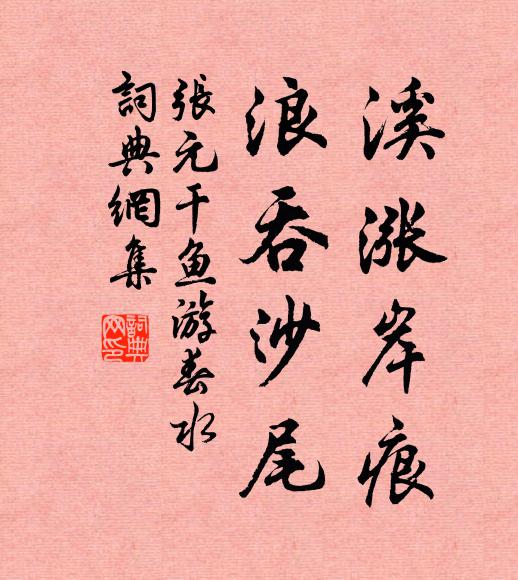 溪涨岸痕
浪吞沙尾
張元干鱼游春水
詞典網集
詞典
网印